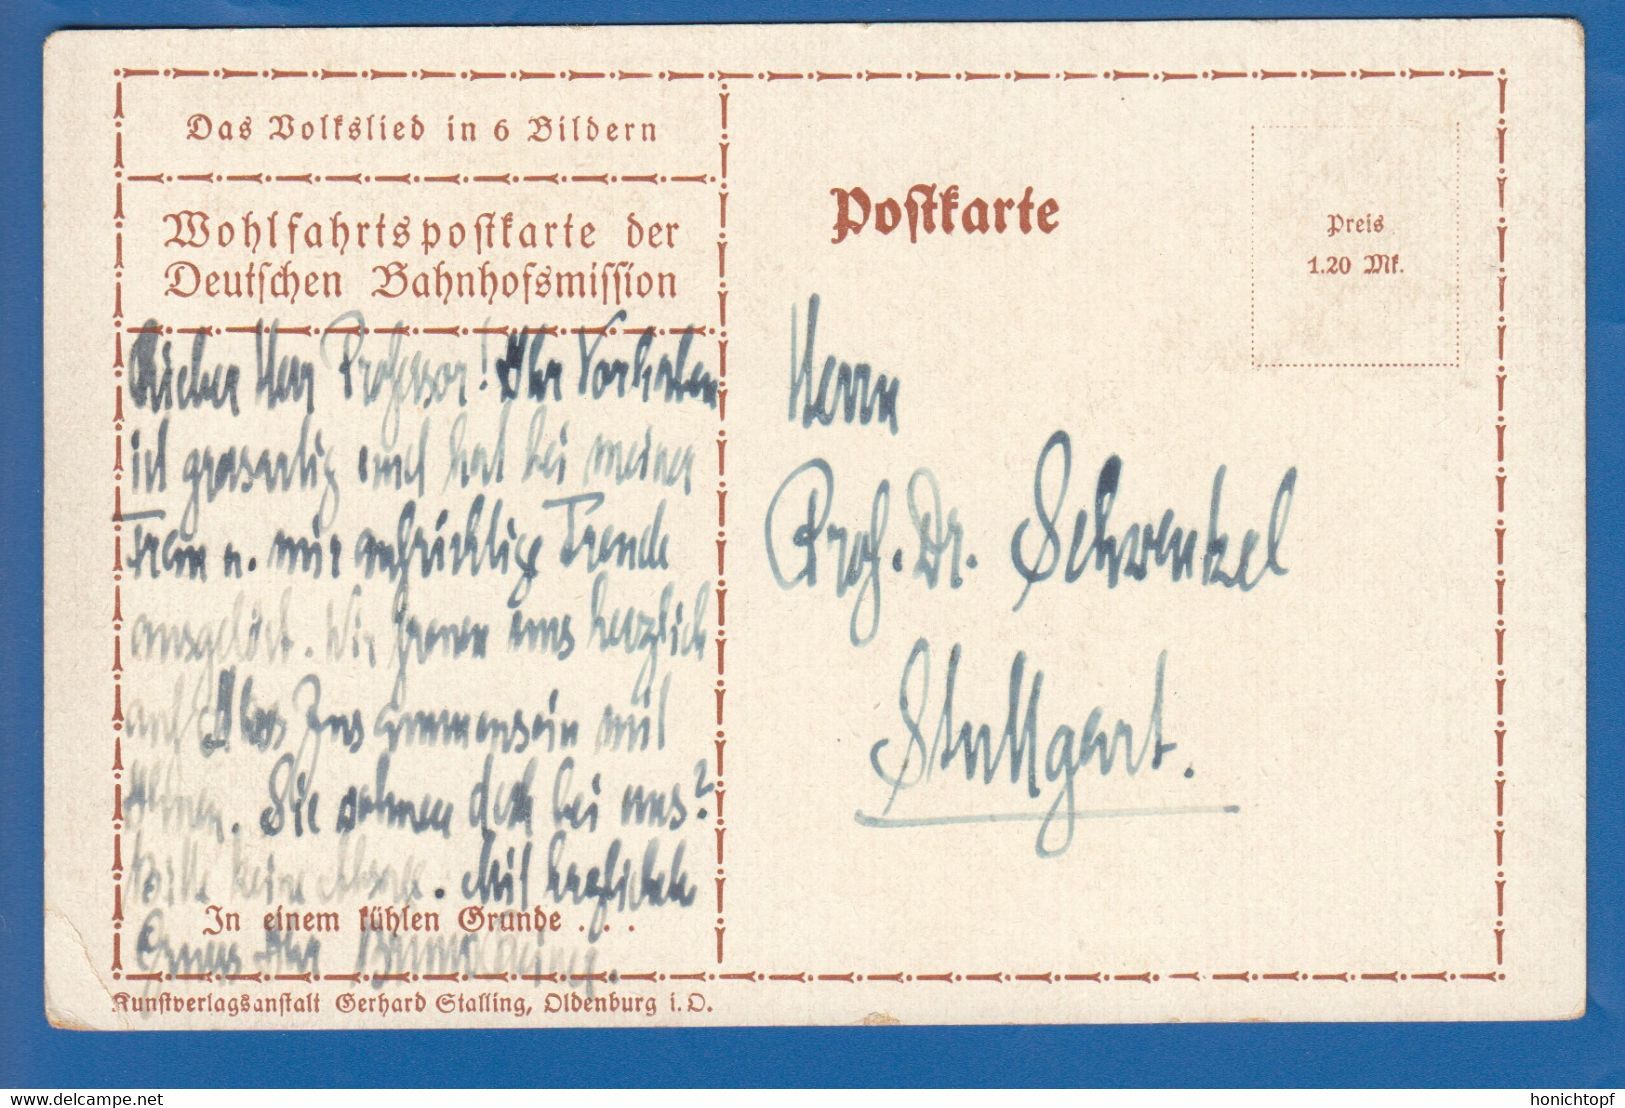 Das Volkslied in 6 Bildern
Wohlfahrtspostkarte der
Deutschen Bahnhofsmission
Lieber Herr Professor! Ihr Vorhaben
ist grossartig und hat bei meiner
Frau u. mir aufrichtige Freude
ausgelöst. Wir freuen uns herzlich
auf das Zusammensein mit
Ihnen. Sie wohnen doch bei uns?
Bitte keine Absage. Mit herzlichen
In einem kühlen Grunde . . .
Gruss Ihr
Kunstverlagsanstalt Gerhard Stalling, Oldenburg i. O.
Postkarte
Preis
1.20 Mk.
Herrn
Prof. Dr. Schwenkel
Stuttgart.
delcampe.net
honichtopf